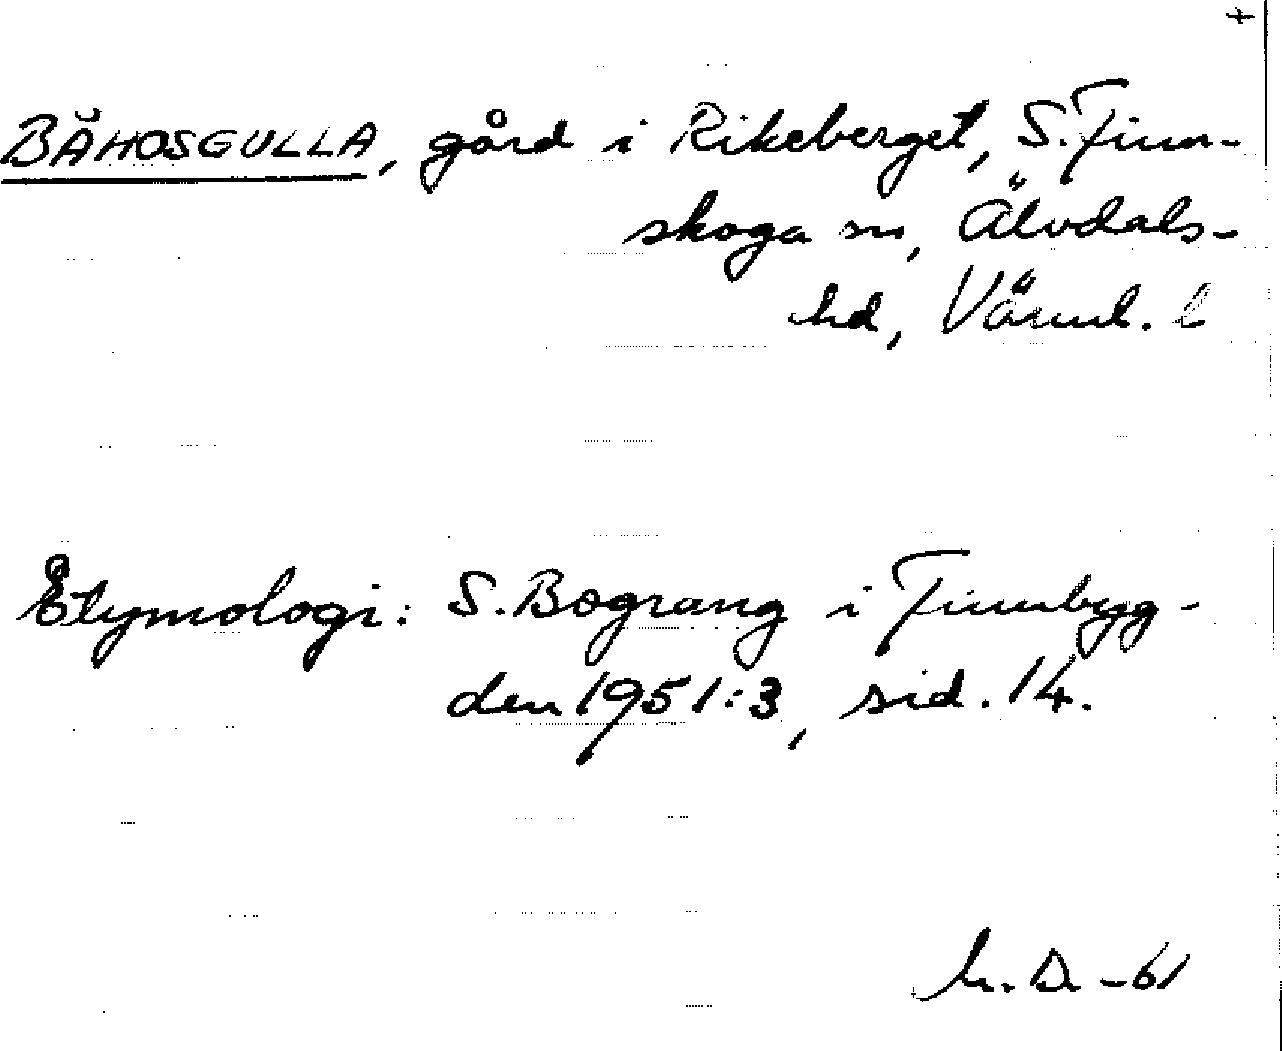 BĂHOSGULLA, gård i Rikeberget, S. Finn-
skoga sn, Älvdals-
hd, Värml. l
Etymologi: S. Bograng i Finnbyg-
den 1951:3, sid. 14.
-61